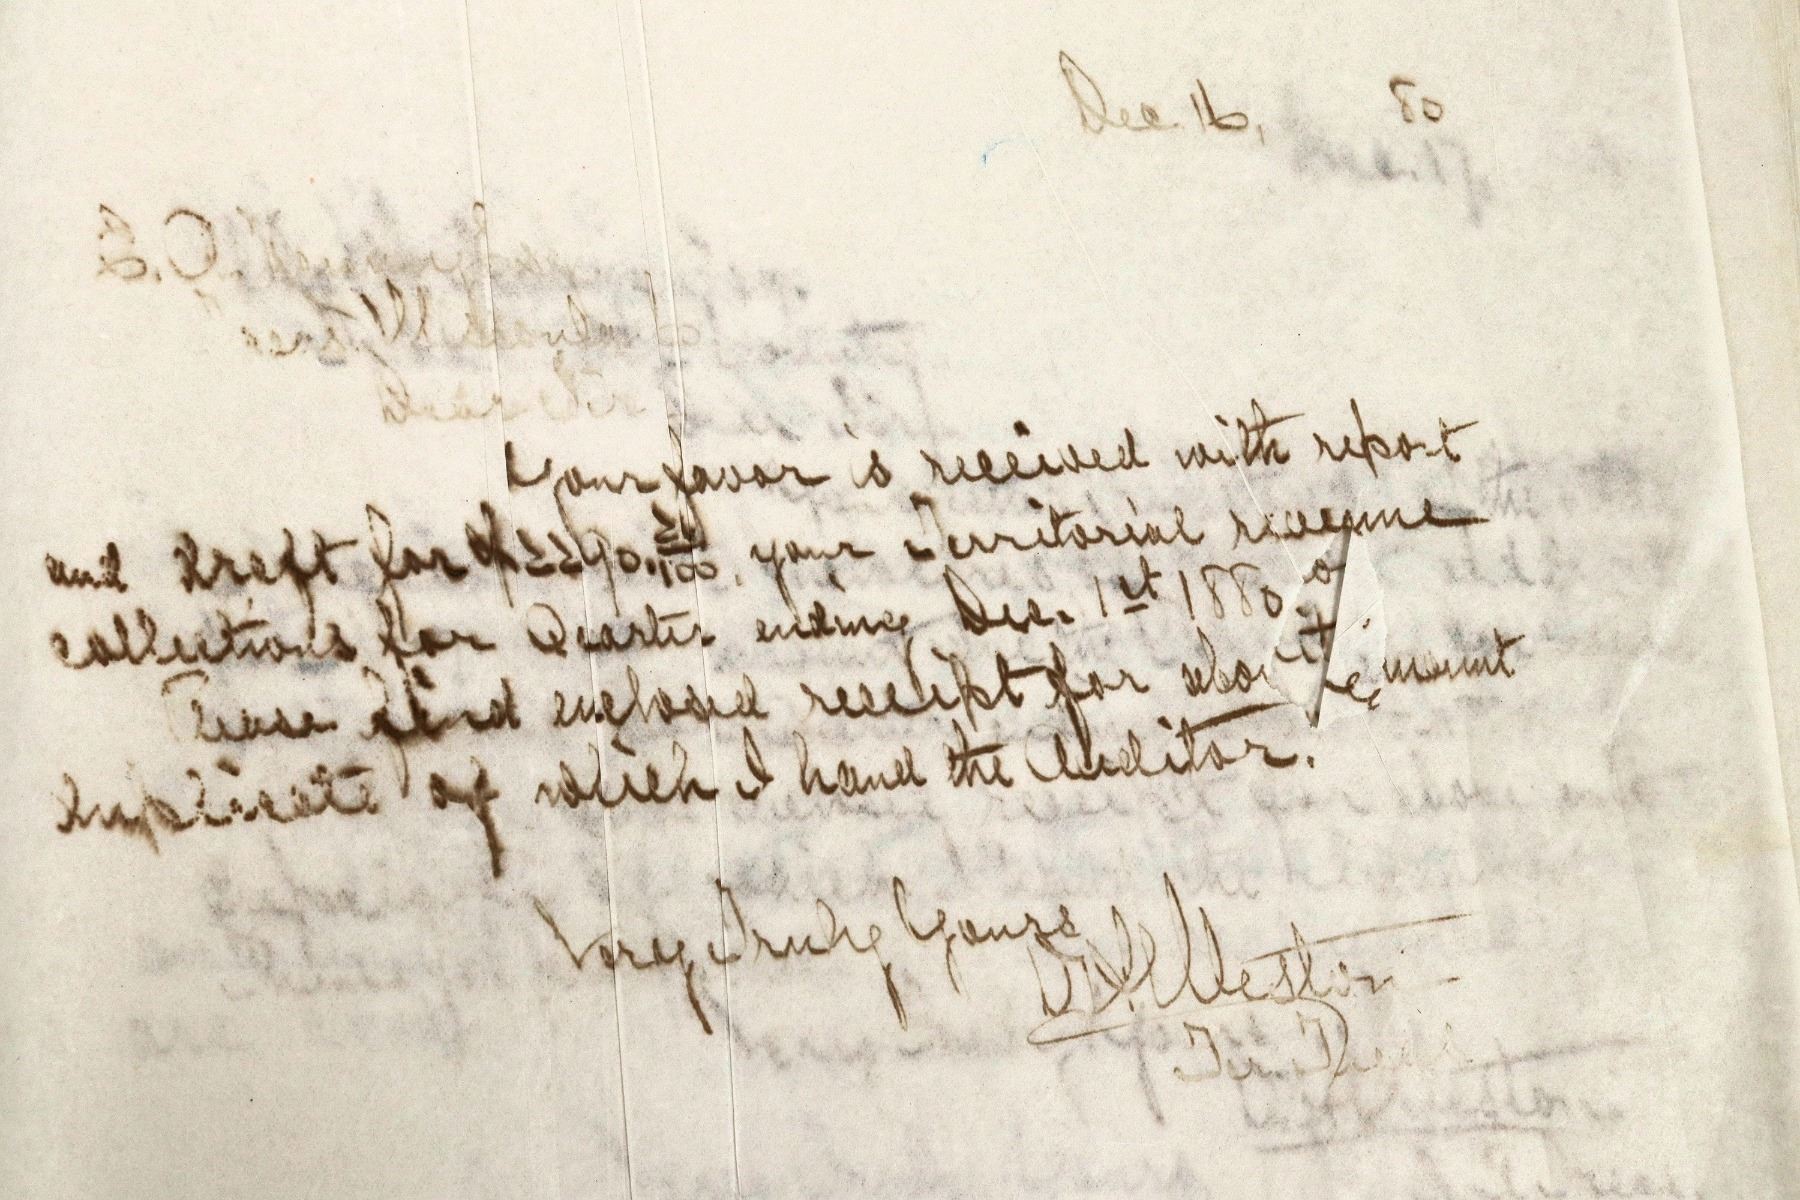 Dec. 16, 80
Dear Sir
Your favor is received with report
and draft for your Territorial revenue
collections for Quarter ending Dec. 1st 1880.
Please find enclosed receipt for above amount
duplicate of which I hand the Auditor.
Very Truly Yours
Weston
Ter. Treas